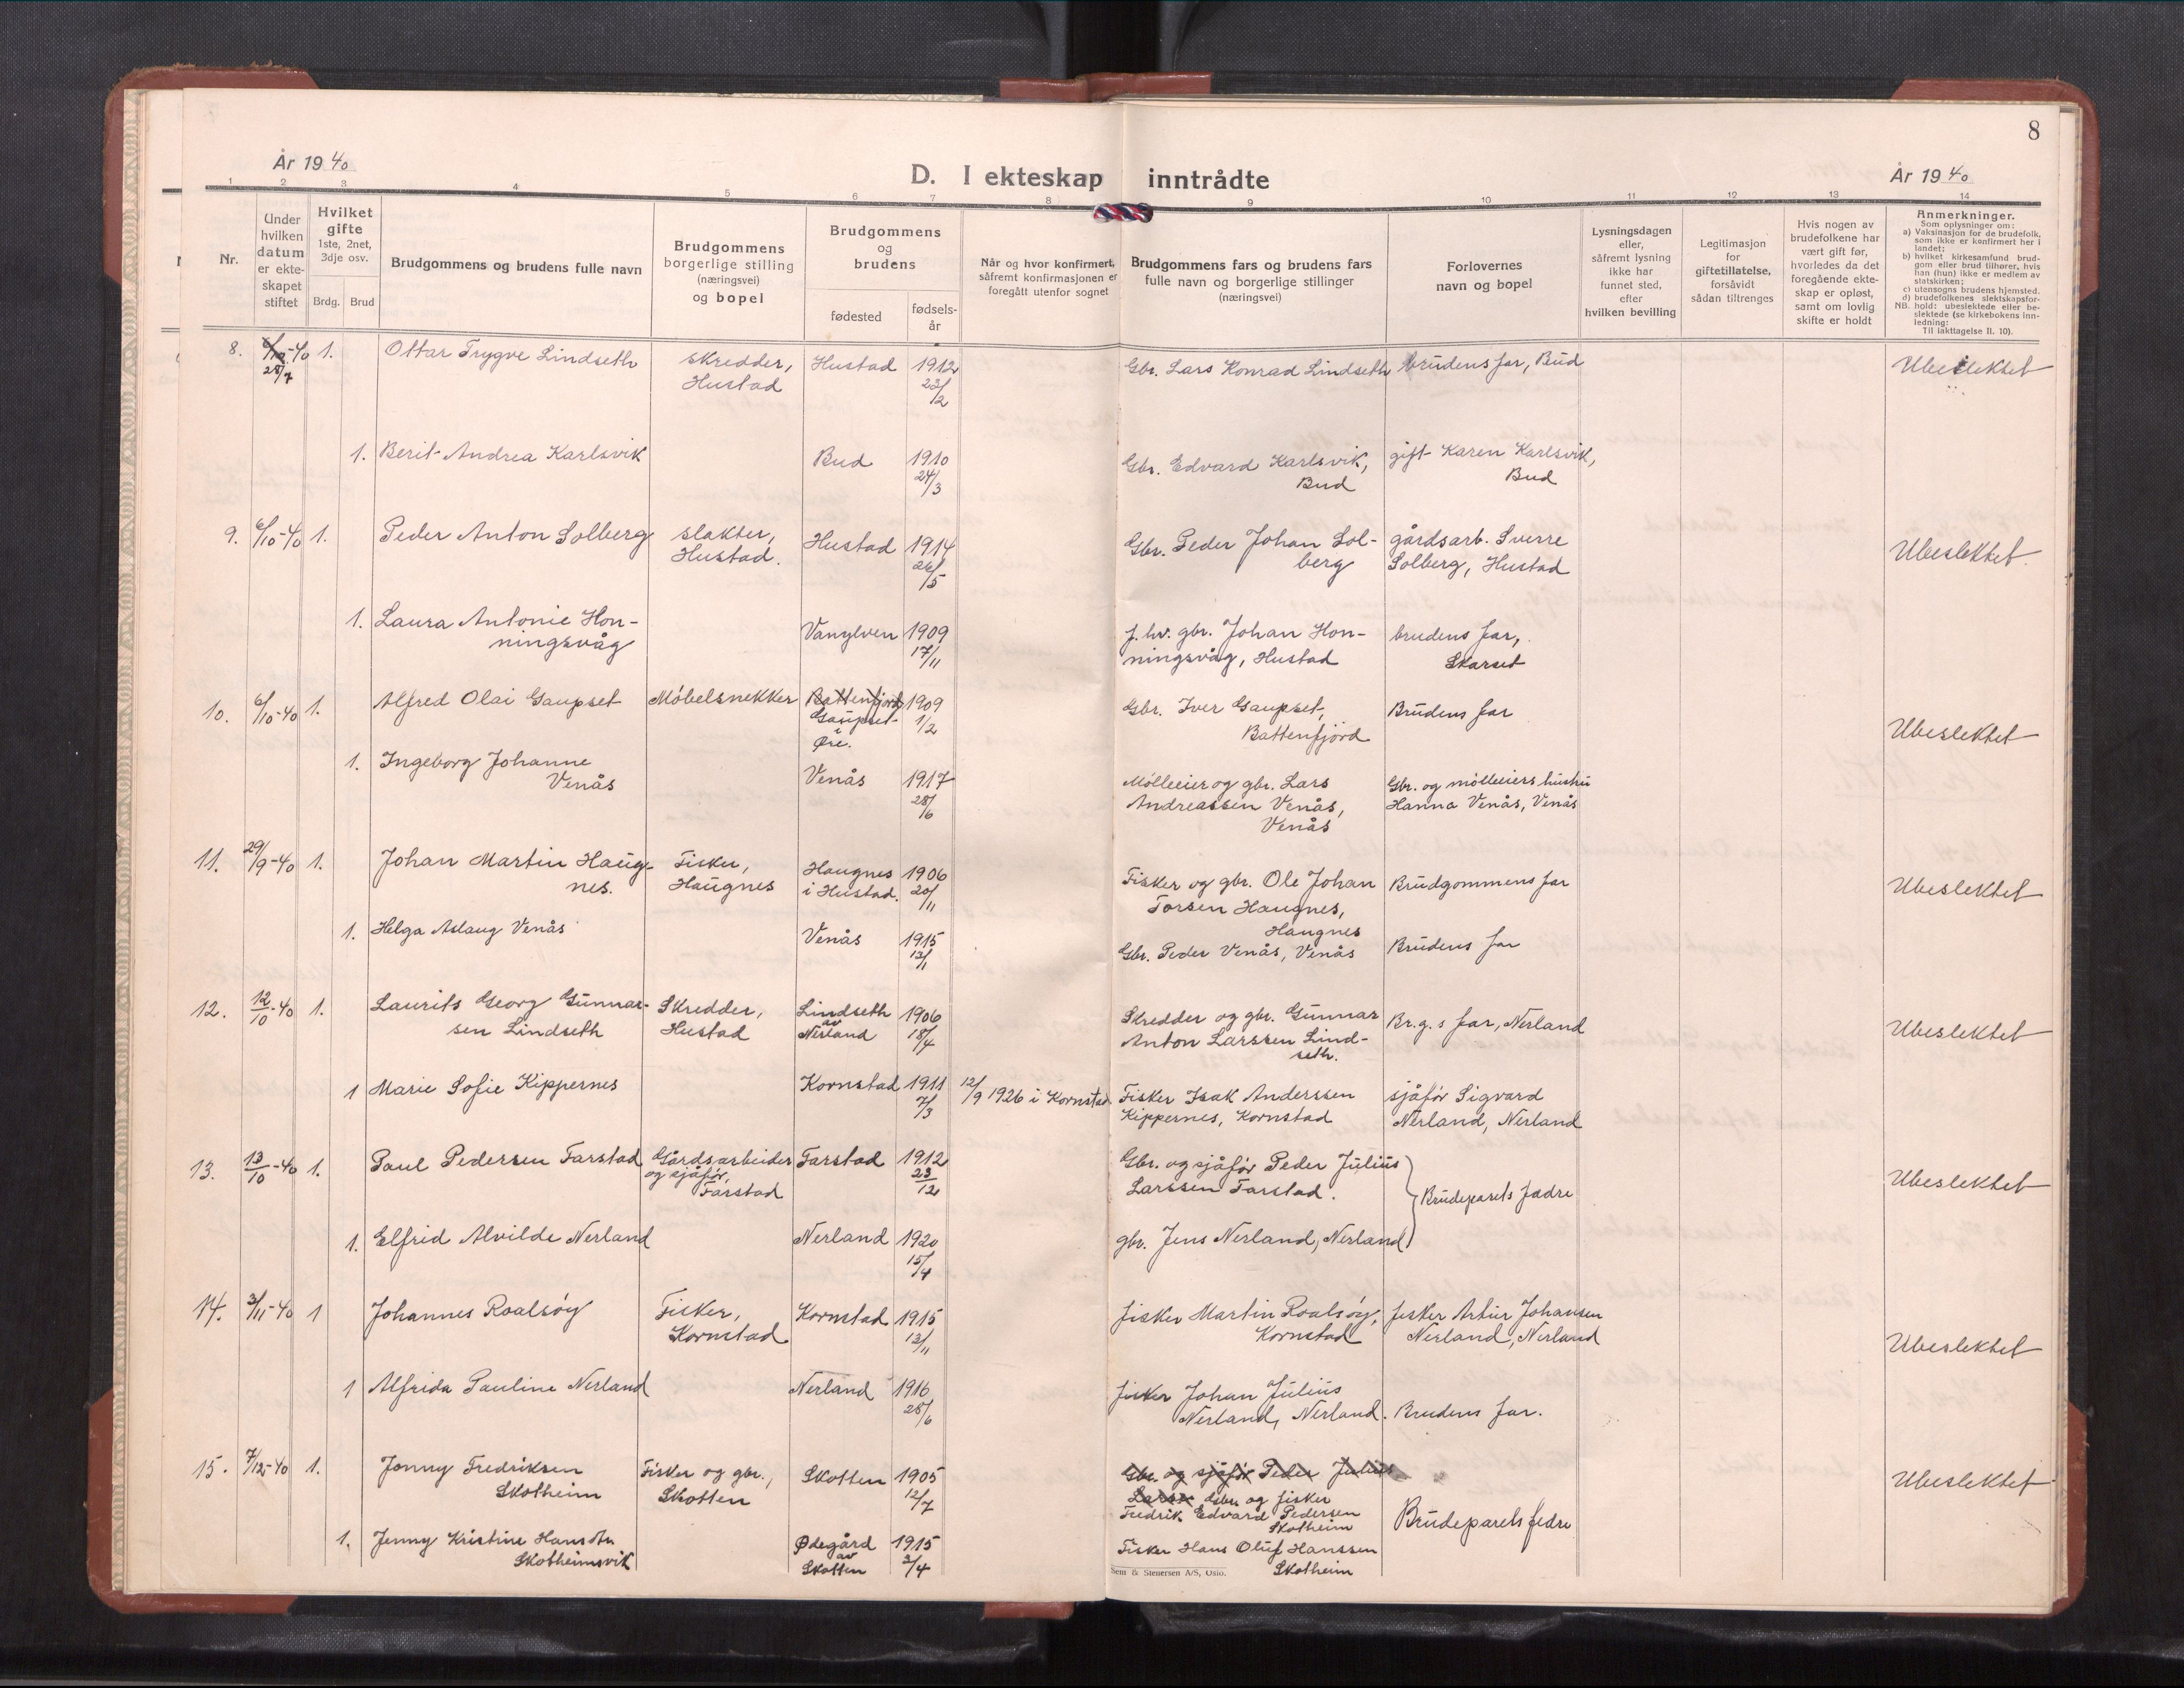 8
År 1940
D. I ekteskap inntrådte
År 1940
1 2 3 4 5 6 7 8 9 10 11 12 13 14
Nr.
Under
hvilken
datum
er ekte-
skapet
stiftet
Hvilket
gifte
1ste, 2net,
3dje osv.
Brdg. Brud
Brudgommens og brudens fulle navn
Brudgommens
borgerlige stilling
(næringsvei)
og bopel
Brudgommens
og
brudens
fødested
fødsels-
år
Når og hvor konfirmert,
såfremt konfirmasjonen er
foregått utenfor sognet
Brudgommens fars og brudens fars
fulle navn og borgerlige stillinger
(næringsvei)
Forlovernes
navn og bopel
Lysningsdagen
eller,
såfremt lysning
ikke har
funnet sted,
efter
hvilken bevilling
Legitimasjon
for
giftetillatelse,
forsåvidt
sådan tiltrenges
Hvis nogen av
brudefolkene har
vært gift før,
hvorledes da det
foregående ekte-
skap er opløst,
samt om lovlig
skifte er holdt
Anmerkninger.
Som oplysninger om:
a) Vaksinasjon for de brudefolk,
som ikke er konfirmert her i
landet;
b) hvilket kirkesamfund brud-
gom eller brud tilhører, hvis
han (hun) ikke er medlem av
statskirken;
c) utensogns brudens hjemsted.
d) brudefolkenes slektskapsfor-
NB. hold: ubeslektede eller be-
slektede (se kirkebokens inn-
ledning:
Til iakttagelse II. 10).
8. 6/10-40 1. Ottar Trygve Lindseth skredder, Hustad 1912 Gbr. Lars Konrad Lindseth brudens far, Bud Ubeslektet
28/7 Hustad 22/2
1. Berit Andrea Karlsvik Bud 1910 Gbr. Edvard Karlsvik, gift Karen Karlsvik,
24/3 Bud Bud
9. 6/10-40 1. Peder Anton Solberg slakter, Hustad 1914 Gbr. Peder Johan Sol- gårdsarb. Sverre Ubeslektet.
Hustad. 26/5 berg Solberg, Hustad
1. Laura Antonie Hon- Vanylven 1909 f. hv. gbr. Johan Hon- brudens far,
ningsvåg 17/11 ningsvåg, Hustad Skarset
10. 6/10-40 1. Alfred Olai Gaupset Möbelsnekker Battenfjord 1909 Gbr. Iver Gaupset, Brudens far Ubeslektet
Gaupset 1/2 Battenfjord
i
Øre.
1. Ingeborg Johanne Venås 1917 Mölleeier og gbr. Lars Gbr. og mölleeiers hustru
Venås 28/6 Andreassen Venås, Hanna Venås, Venås
Venås
11. 29/9-40 1. Johan Martin Haug- Fisker, Haugnes 1906 Fisker og gbr. Ole Johan Brudgommens far Ubeslektet
nes. Haugnes i Hustad. 20/11 Torsen Haugnes,
Haugnes
1. Helga Aslaug Venås Venås 1915 Gbr. Peder Venås, Venås Brudens far
12. 12/10-40 1. Laurits Georg Gunnar- Skredder, Lindseth 1906 Skredder og gbr. Gunnar Br.g.s far, Nerland Ubeslektet
sen Lindseth Hustad av Nerland 18/4 Anton Larssen Lind-
seth.
1 Marie Sofie Kippernes Kornstad 1911 12/9 1926 i Kornstad Fisker Isak Anderssen sjåför Sigvard
7/3 Kippernes, Kornstad Nerland, Nerland
13. 13/10-40 1. Paul Pedersen Farstad Gårdsarbeider Farstad 1912 Gbr. og sjåför Peder Julius Ubeslektet
og sjåför, 23/12 Larssen Farstad. Brudeparets fædre
Farstad
1. Elfrid Alvilde Nerland Nerland 1920 gbr. Jens Nerland, Nerland
15/4
14. 3/11-40 1 Johannes Roalsöy Fisker, Kornstad 1915 fisker Martin Roalsöy, fisker Artur Johansen Ubeslektet
Kornstad Kornstad Nerland, Nerland
1 Alfrida Pauline Nerland Nerland 1916 fisker Johan Julius
28/6 Nerland, Nerland. Brudens far.
15. 7/12-40 1. Jonny Fredriksen Fisker og gbr., Skotten 1905 Gbr. og sjåför Peder Julius Ubeslektet
Skotheim Skotten 12/7 Larss Gbr. og fisker
Fredrik Edvard Pedersen
Skotheim Brudeparets fedre
1. Jenny Kristine Hansdtr. Ødegård 1915 Fisker Hans Oluf Hanssen
Skotheimsvik av Skotten 2/4 Skotheim
Sem & Stenersen A/S, Oslo.